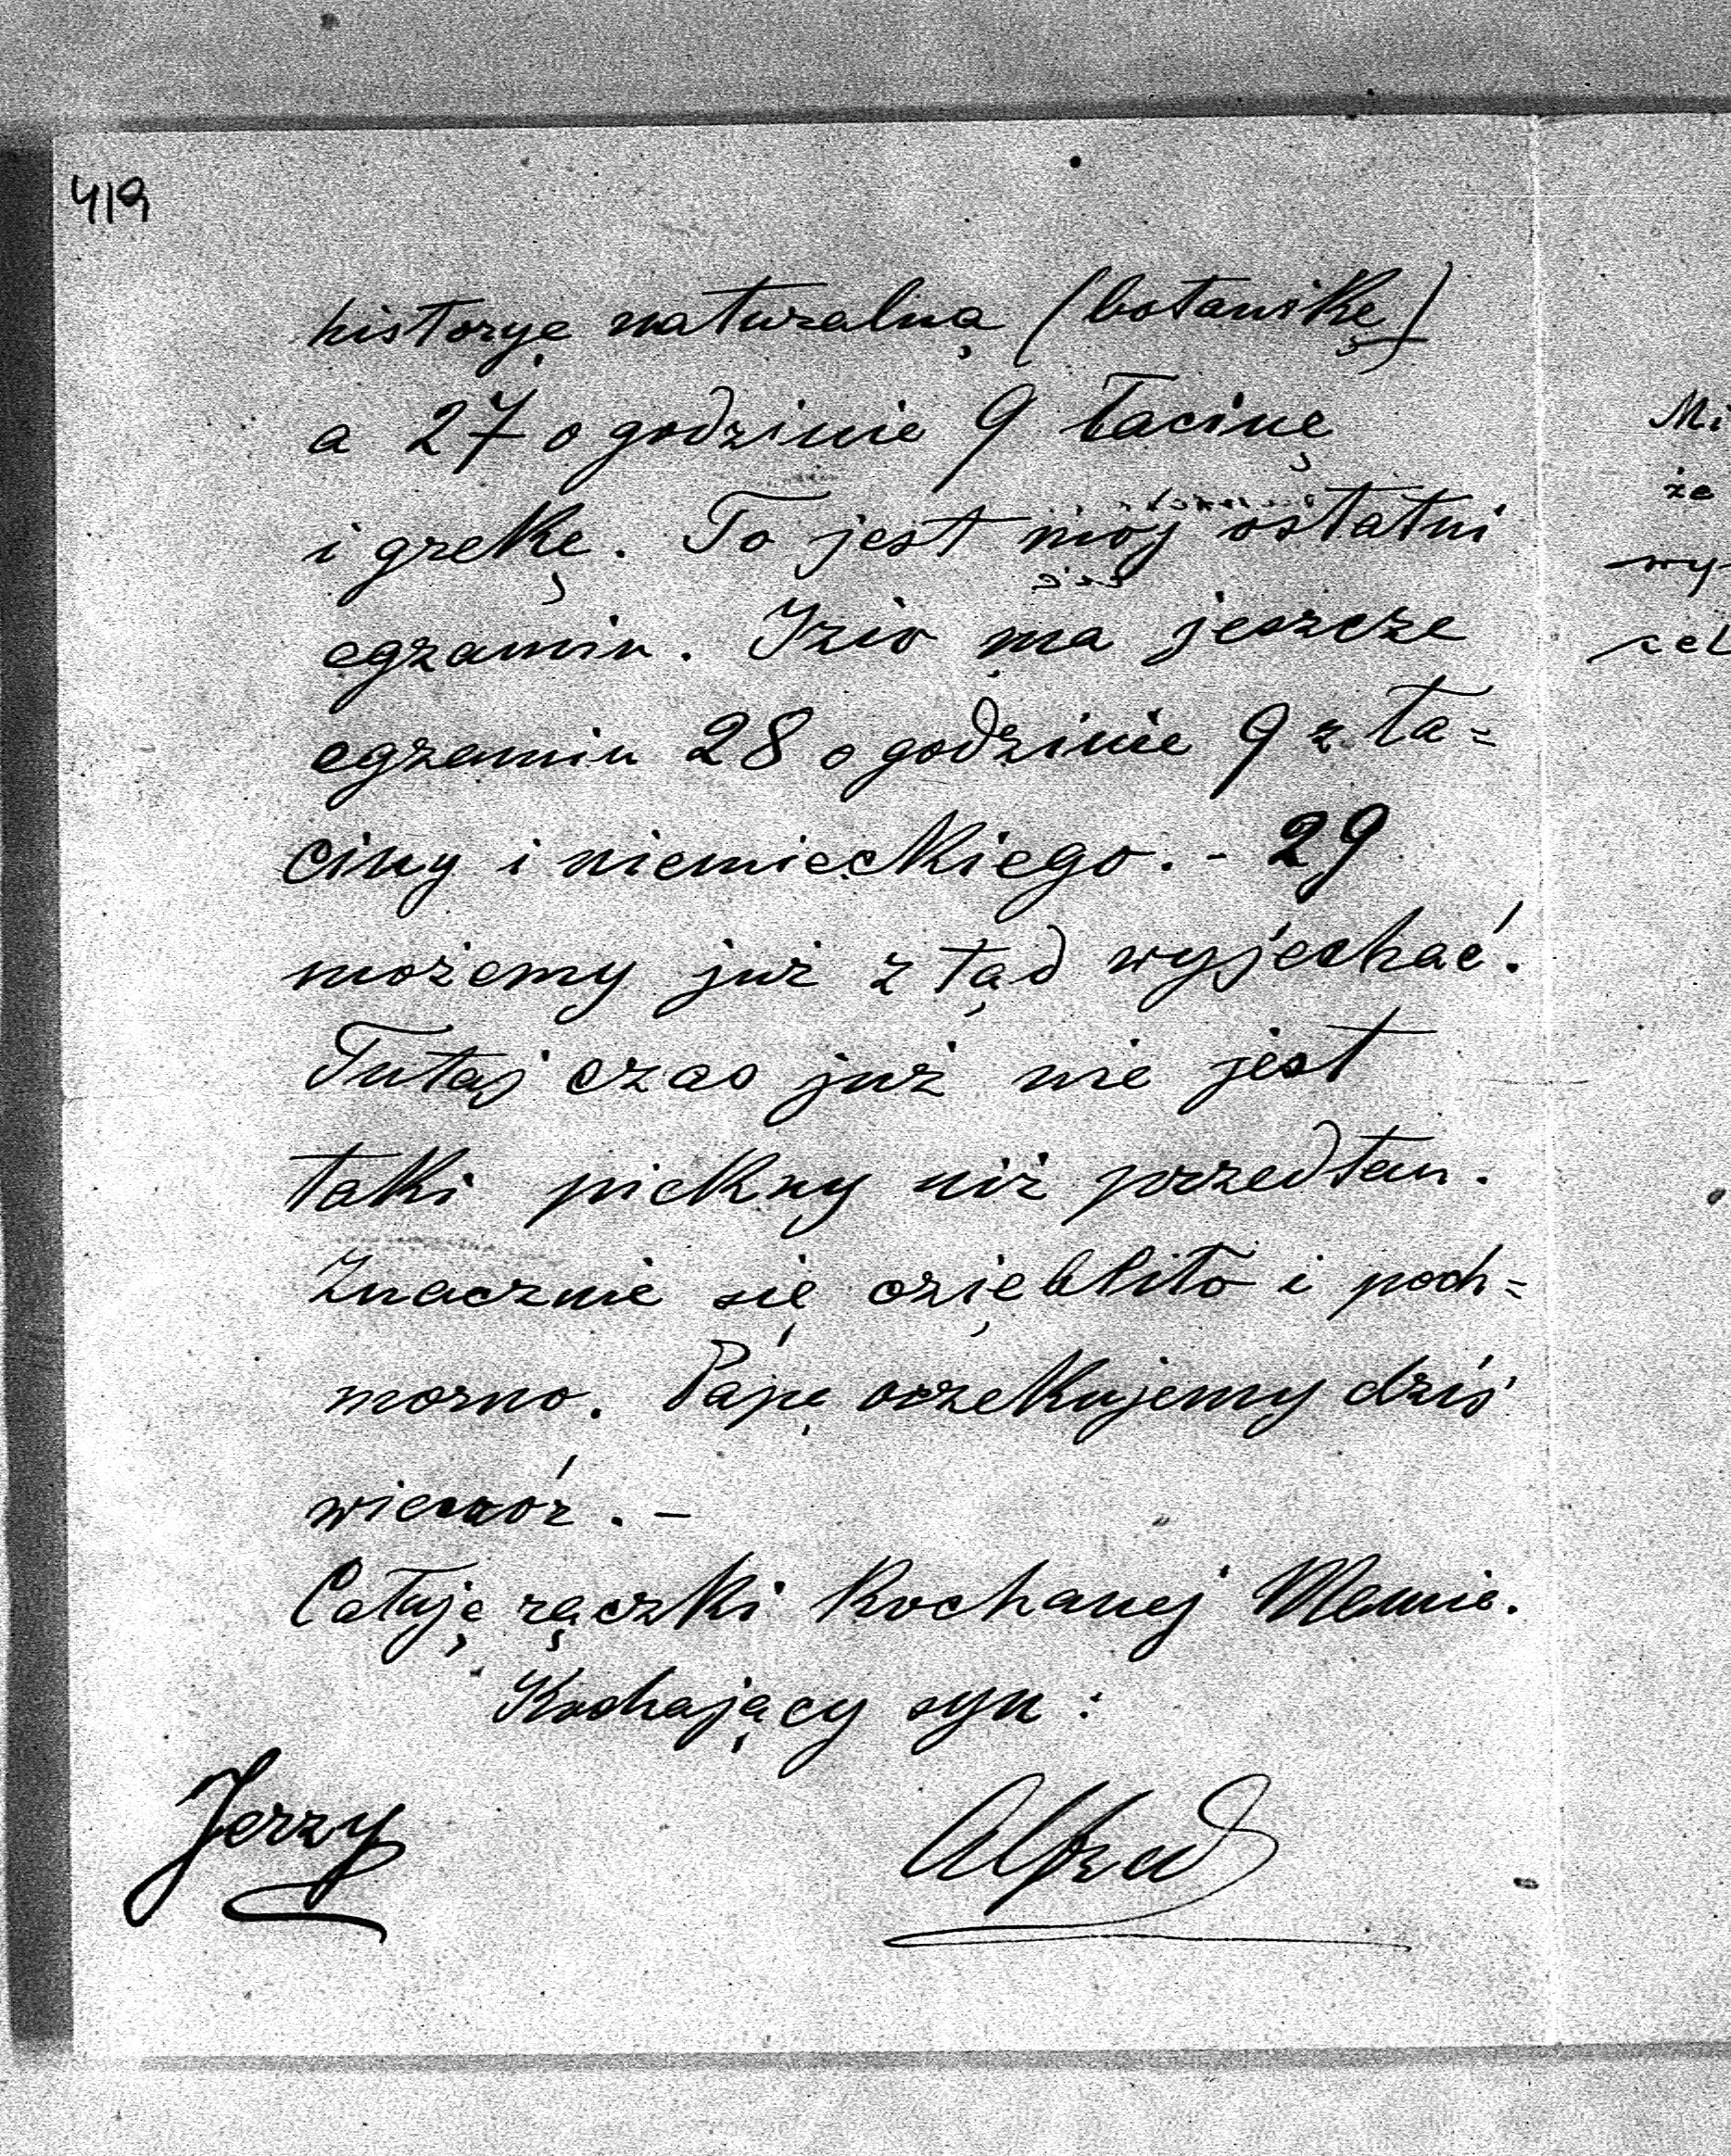 419
historyę naturalną (botanikę)
a 27 o godzinie 9 łacinę
i grekę. To jest mój ostatni
egzamin. Izio ma jeszcze
egzamin 28 o godzinie 9 z ła=
ciny i niemieckiego. - 29
możemy już z tąd wyjechać.
Tutaj czas już nie jest
taki piekny niż przedtem.
Znacznie się oziębliło i poch=
morno. Papę oczekujemy dziś
wieczór. -
Całuję rączki kochanej Mamie.
Kochający syn:
Jerzy
Alfred
Mi
że
wy
cel